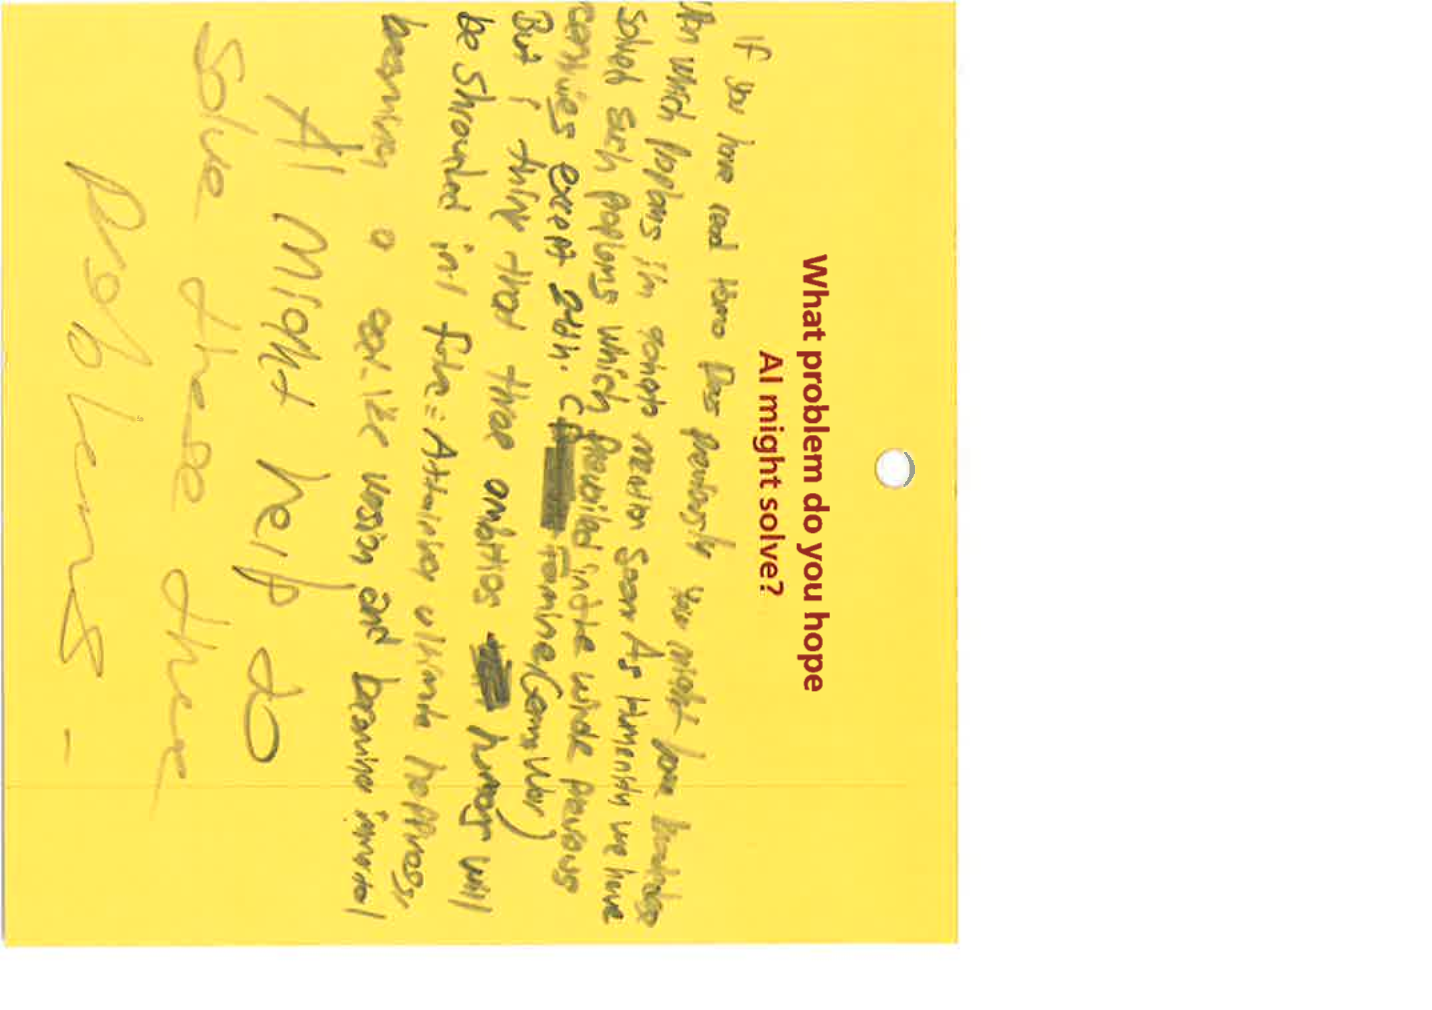 What problem do you hope
AI might solve?
If you have read Homo Deus previously you might have knowledge
which problems in mention soon As Humanity we have
solved such problems which in the previous
centuries except death. ( Famine, War)
But I think that three ambitios humas will
be shrouded int = Attaining ultimate happiness,
becaming a version and becaming immortal
AI Might help to
Solve these three
problems -